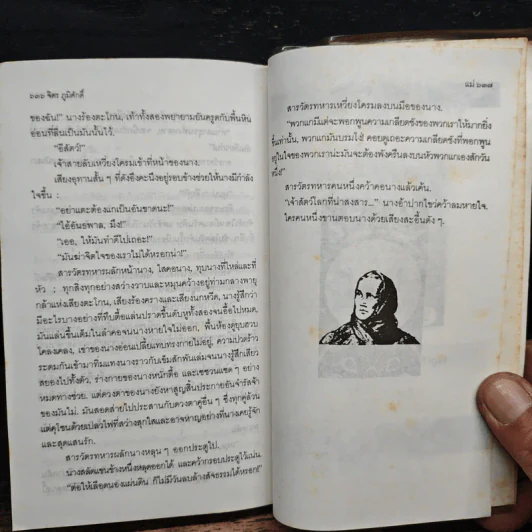 ๖๓๖ จิตร ภูมิศักดิ์
ของฉัน!" นางร้องตะโกน, เท้าทั้งสองพยายามยันครูดกับพื้นหิน
อ่อนที่ลื่นเป็นมันนั้นไว้.
"อีสัตว์!"
เจ้าสายลับเหวี่ยงโครมเข้าที่หน้าของนาง.
เสียงอุทานสั้น ๆ ที่ดังอึงคะนึงอยู่รอบข้างช่วยให้นางมีกำลัง
ใจขึ้น :
"อย่าแตะต้องแกเป็นอันขาดนะ!"
"ไอ้อันธพาล, มึง!"
"เออ, ให้มันทำดีไปเถอะ!"
"มันฆ่าจิตใจของเราไม่ได้หรอกน่า!"
สารวัตรทหารผลักหน้านาง, ไสคอนาง, ทุบนางที่ไหล่และที่
หัว ; ทุกสิ่งทุกอย่างสว่างวาบและหมุนคว้างอยู่ท่ามกลางพายุ
กล้าแห่งเสียงตะโกน, เสียงร้องครางและเสียงนกหวีด, นางรู้สึกว่า
มีอะไรบางอย่างที่ทึบตื้อแล่นปราดขึ้นดับหูทั้งสองจนอื้อไปหมด,
มันแล่นขึ้นเต็มในลำคอจนนางหายใจไม่ออก, พื้นห้องดูยุบฮวบ
โคลงเคลง, เข่าของนางอ่อนเปลี้ยแทบทรงกายไม่อยู่, ความปวดร้าว
ระดมกันเข้ามาทิ่มแทงนางราวกับเข็มสักพันเล่มจนนางรู้สึกเสียว
สยองไปทั้งตัว, ร่างกายของนางหนักตื้อ และเซซวนแซด ๆ อย่าง
หมดทางช่วย. แต่ดวงตาของนางยังหาสูญสิ้นประกายอันจำรัสจ้า
ของมันไม่. มันสอดส่ายไปประสานกับดวงตาคู่อื่น ๆ ซึ่งทุกคู่ล้วน
แต่คุโชนด้วยเปลวไฟที่สว่างสุกใสและอาจหาญอย่างที่นางเคยรู้จัก
และสุดแสนรัก.
สารวัตรทหารผลักนางหลุน ๆ ออกประตูไป.
นางสลัดแขนข้างหนึ่งหลุดออกได้ และคว้ากรอบประตูไว้แน่น.
"ต่อให้เลือดนองแผ่นดิน ก็ไม่มีวันลบล้างสัจธรรมได้หรอก!"
แม่ ๖๓๗
สารวัตรทหารเหวี่ยงโครมลงบนมือของนาง.
"พวกแกมีแต่จะพอกพูนความเกลียดชังของพวกเราให้มากยิ่ง
ขึ้นเท่านั้น, พวกแกมันบรมโง่! คอยดูเถอะความเกลียดชังที่พอกพูน
อยู่ในใจของพวกเราน่ะมันจะต้องพังครืนลงบนหัวพวกแกเองสักวัน
หนึ่ง!"
สารวัตรทหารคนหนึ่งคว้าคอนางแล้วเค้น.
"เจ้าสัตว์โลกที่น่าสงสาร..." นางอ้าปากโขว่คว้าลมหายใจ.
ใครคนหนึ่งขานตอบนางด้วยเสียงสะอื้นดัง ๆ.